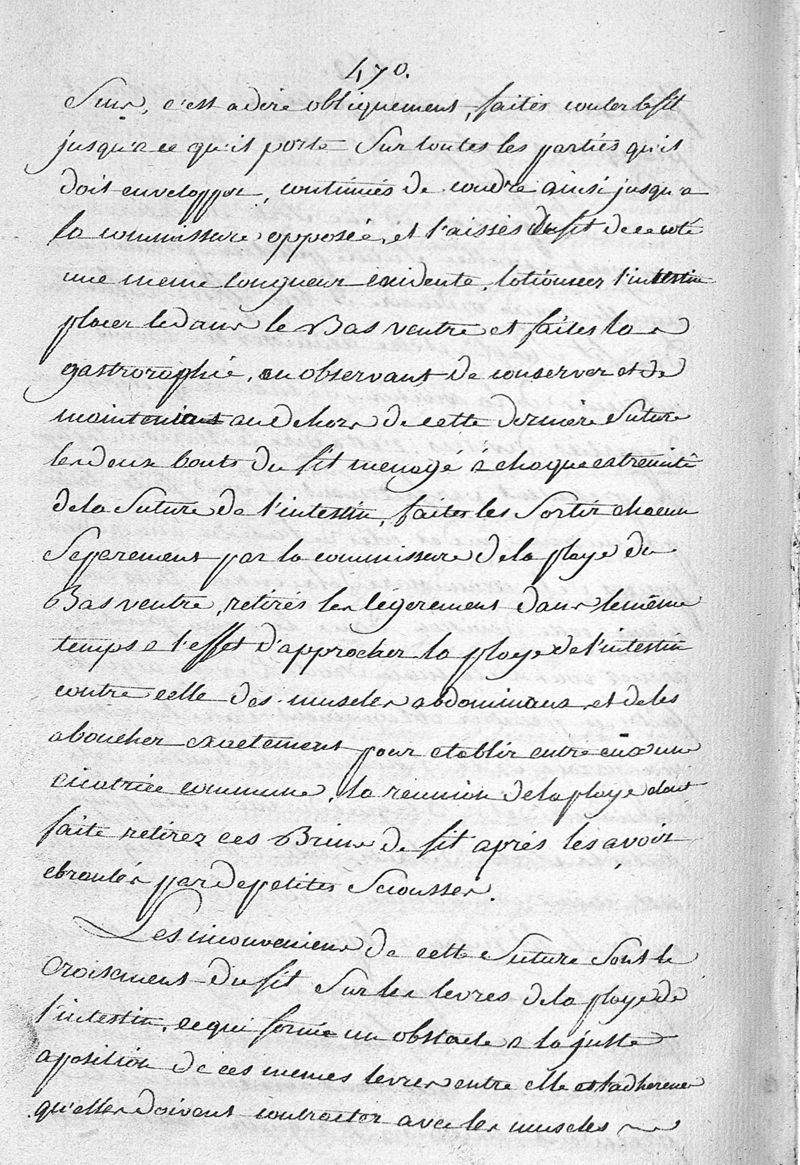 470.
Sens, c'est adire obliquement, faites couler le fil
jusqu'a ce qu'il porte Sur toutes les parties qu'il
doit envelopper, continués de coudre ainsi jusqu'a
la commissure opposée, et laissés du fil de ce coté
une meme longueur excedente, lotionnez l'intestin
placer le dans le Bas ventre et faites la
gastroraphie, en observant de conserver et de
maintenir au dehors de cette derniere Suture
les deux bouts du fil menagé a chaque extremité
de la Suture de l'intestin, faites les Sortir chacun
Separement par la commissure de la playe du
Bas ventre, retirés les légerement dans le même
temps a l'effet d'approcher la playe de l'intestin
contre celle des muscles abdominaux et de les
aboucher exactement pour etablir entre eux une
cicatrice commune, la reunion de la playe etant
faite retirez ces Brins de fil aprés les avoir
ebranlés par de petites Secousses
Les inconveniens de cette Suture Sont le
Croisement du fil Sur les levres de la playe de
l'intestin, ce qui forme un obstacle a la juste
aposition de ces memes levres entre elle et adherence
qu'elles doivent contracter avec les muscles